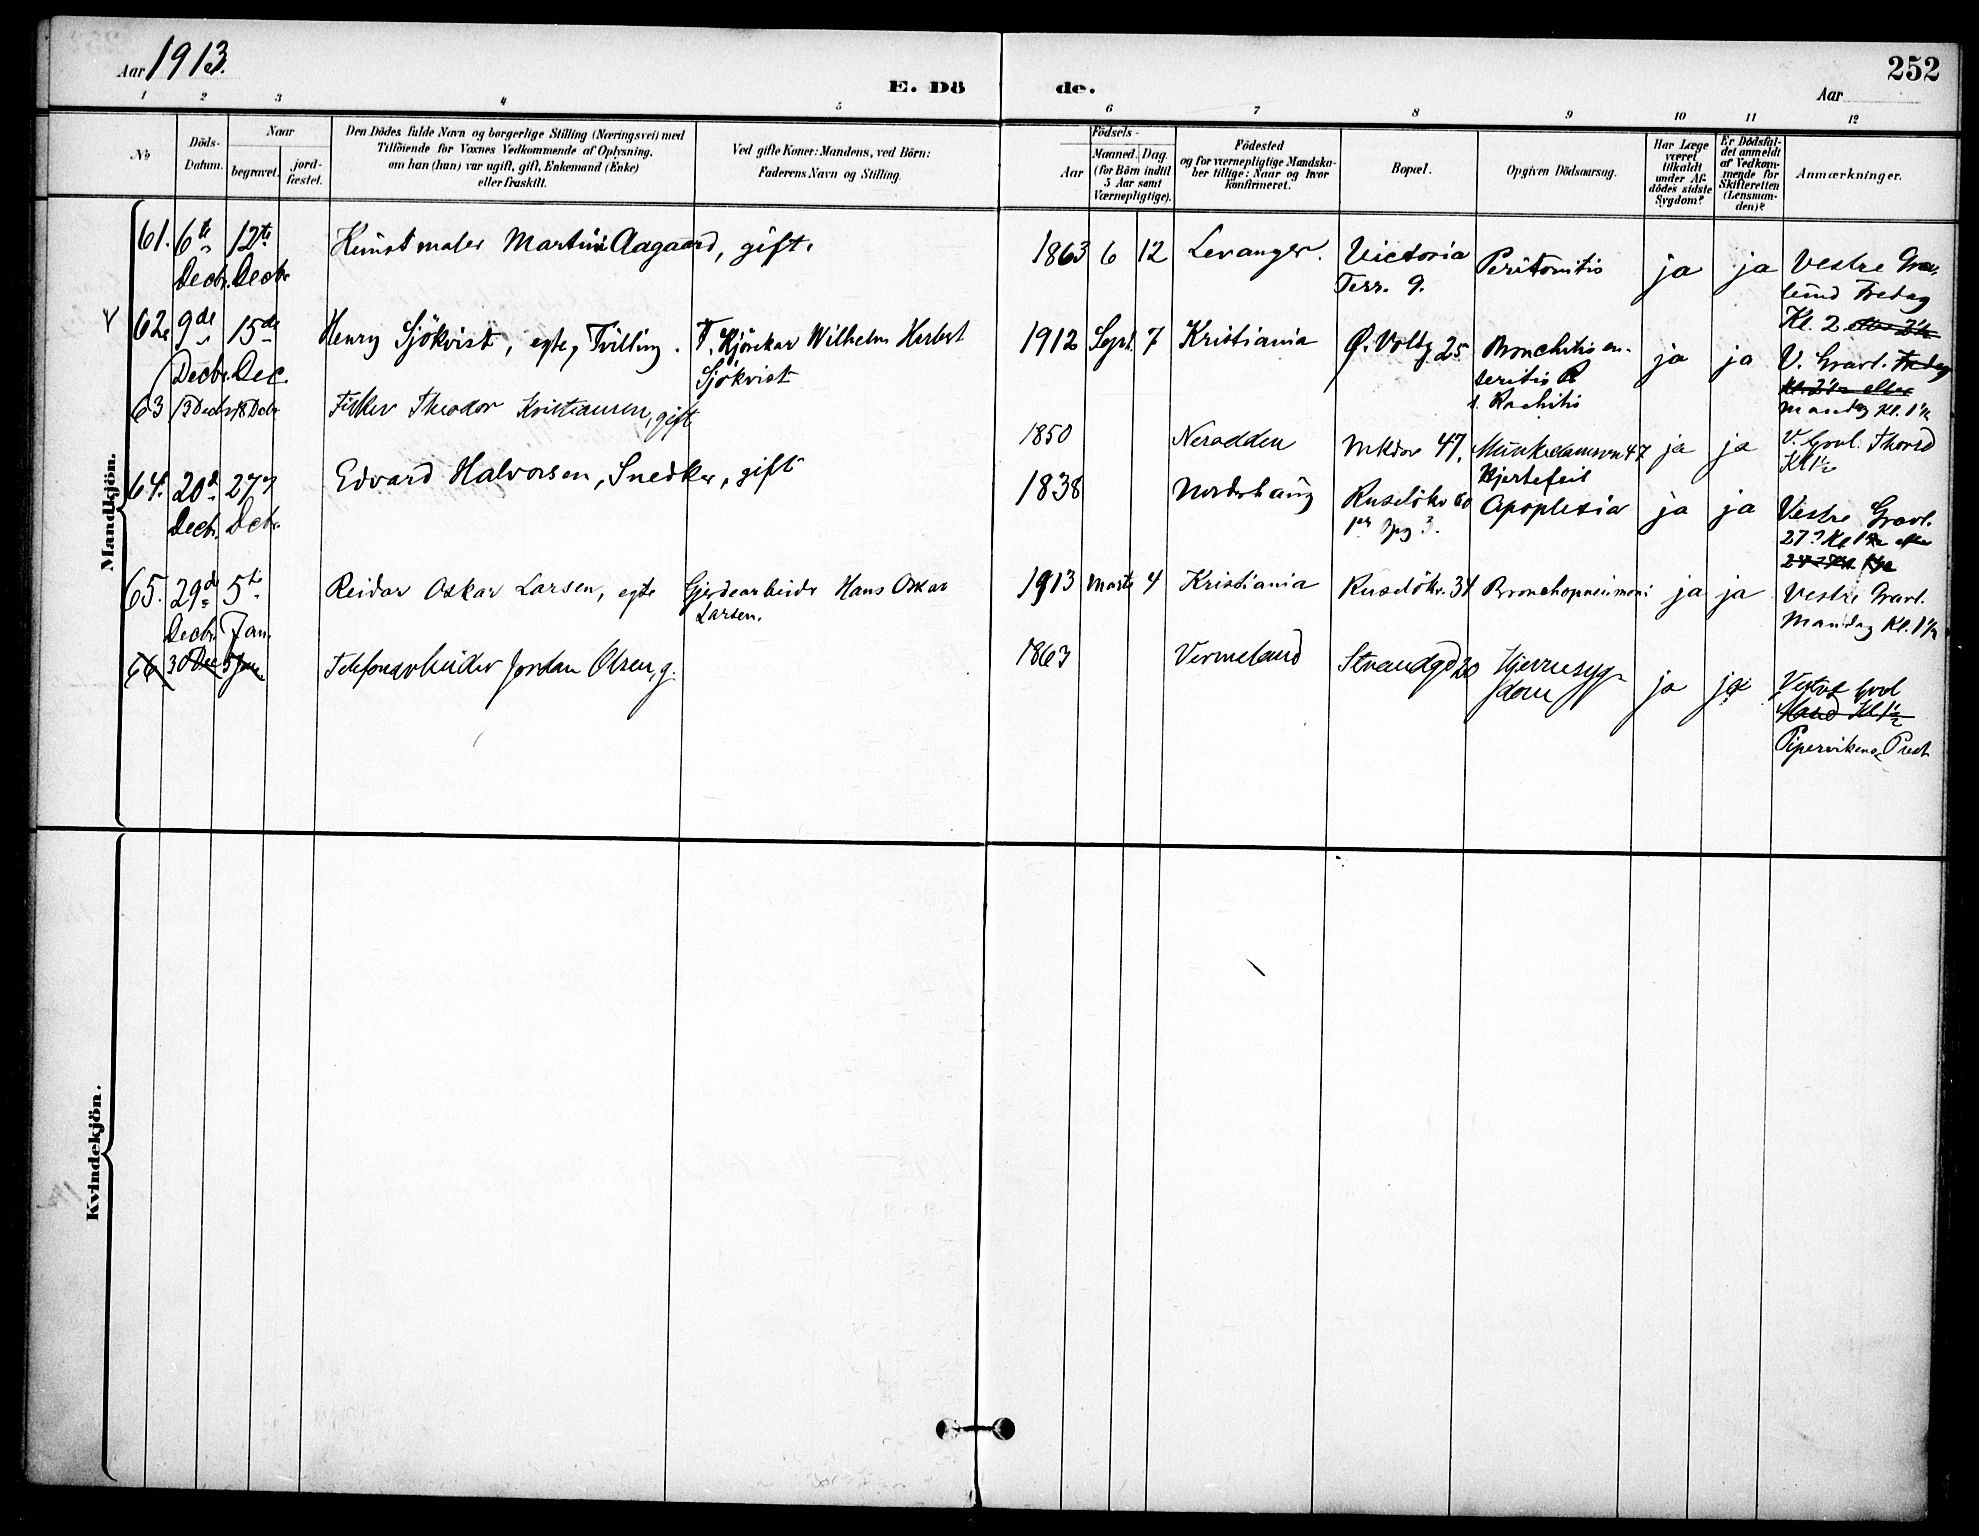 Aar 1913.
252
E. Dö de.
Aar
1 2 3 4 5 6 7 8 9 10 11 12
No
Döds-Datum.
Naar
begravet.
jord-fæstet.
Den Dödes fulde Navn og borgerlige Stilling (Næringsvei) med
Tilföiende for Voxnes Vedkommende af Oplysning,
om han (hun) var ugift, gift, Enkemand (Enke)
eller fraskilt.
Ved gifte Koner: Mandens, ved Börn:
Faderens Navn og Stilling.
Födsels-
Aar
Maaned.
Dag.
(for Börn indtil
5 Aar samt
Værnepligtige).
Födested
og for værnepligtige Mandska-
ber tillige: Naar og hvor
konfirmeret.
Bopæl.
Opgiven Dödsaarsag.
Har Læge
været
tilkaldt
under Af-
dödes sidste
Sygdom?
Er Dödsfal-
det anmeldt
af Vedkom-
mende for
Skifteretten
(Lensman-
den)?
Anmærkninger.
Mandkjön.
61. 6te Decbr. 12te Decbr Kunstmaler Martin Aagaard, gift. 1863 6 12 Levanger. Victoria Terr. 9. Peritonitis ja ja Vestre Grav-
lund Fredag
Kl. 2
62. 9de Decbr. 15de Dec. Henry Sjökvist, egte, Tvilling. F. Kjörekar Wilhelm Herbert
Sjökvist 1912 Sept. 7 Kristiania Ø. Voldg 25 Bronchitis en-
teritis
Rachitis ja ja V. Gravl. Fredag
Kl. 2 1/2 eller
Mandag Kl. 1 1/2
63 13 Decbr 18 Dcbr Fisker Theodor Kristiansen, gift 1850 Nerodden Mkdv 47. Munkedamsvn 47
Hjertefeil ja ja V. Gravl. Thorsd
Kl 1 1/2
64. 20de Decbr. 27de Dcbr. Edvard Halvorsen, Snedker, gift 1838 Norderhaug Ruselökv 60 Apoplexia ja ja Vestre Gravl.
27? Kl 1 1/2 eller
65. 29de Decbr. 5te Jan. Reidar Oskar Larsen, egte Gjerdearbeidr Hans Oskar
Larsen. 1913 Marts 4 Kristiania Ruselökv. 34 Bronchopneumoni ja ja Vestre Gravl.
Mandag Kl. 1 1/2
66 30 Dec 5 Jan. Telefonarbeider Jordan Olsen, g. 1863 Vermeland Strandgd 20 Hjernesyg-
dom ja ja Vestre Gravl
Mand Kl 1 1/2
Pipervikens Prest
Kvindekjön.